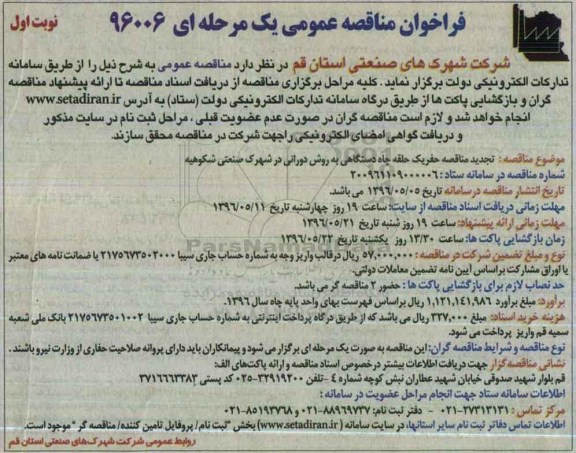 فراخوان مناقصه عمومی یک مرحله ای ۹۶۰۰۶
نوبت اول
شرکت شهرک های صنعتی استان قم در نظر دارد مناقصه عمومی به شرح ذیل را از طریق سامانه
تدارکات الکترونیکی دولت برگزار نماید. کلیه مراحل برگزاری مناقصه از دریافت اسناد مناقصه تا ارائه پیشنهاد مناقصه
گران و بازگشایی پاکت ها از طریق درگاه سامانه تدارکات الکترونیکی دولت (ستاد) به آدرس www.setadiran.ir
انجام خواهد شد و لازم است مناقصه گران در صورت عدم عضویت قبلی ، مراحل ثبت نام در سایت مذکور
و دریافت گواهی امضای الکترونیکی را جهت شرکت در مناقصه محقق سازند.
موضوع مناقصه : تجدید مناقصه حفریک حلقه چاه دستگاهی به روش دورانی در شهرک صنعتی شکوهیه
شماره مناقصه در سامانه ستاد : ۲۰۰۹۶۱۱۰۹۰۰۰۰۰۶
تاریخ انتشار مناقصه در سامانه تاریخ ۱۳۹۶/۰۵/۰۵ می باشد.
مهلت زمانی دریافت اسناد مناقصه از سایت: ساعت ۱۹ روز چهارشنبه تاریخ ۱۳۹۶/۰۵/۱۱
مهلت زمانی ارائه پیشنهاد: ساعت ۱۹ روز شنبه تاریخ ۱۳۹۶/۰۵/۲۱
زمان بازگشایی پاکت ها: ساعت ۱۳/۳۰ روز یکشنبه تاریخ ۱۳۹۶/۰۵/۲۲
نوع و مبلغ تضمین شرکت در مناقصه : ۵۷,۰۰۰,۰۰۰ ریال در قالب واریز وجه به شماره حساب جاری سیبا ۲۱۷۵۶۷۳۵۰۲۰۰۰ یا ضمانت نامه های معتبر
یا اوراق مشارکت براساس آیین نامه تضمین معاملات دولتی.
حد نصاب لازم برای بازگشایی پاکت ها : حضور ۲ مناقصه گر می باشد.
برآورد: مبلغ برآورد ۱,۱۲۱,۱۴۱,۹۸۶ ریال براساس فهرست بهای واحد پایه چاه سال ۱۳۹۶.
هزینه خرید اسناد: مبلغ ۳۲۷,۰۰۰ ریال می باشد که از طریق درگاه پرداخت اینترنتی به شماره حساب جاری سیبا ۲۱۷۵۶۷۳۵۰۱۰۰۲ بانک ملی شعبه
سمیه قم واریز پرداخت می شود.
نوع مناقصه و شرایط مناقصه گران: این مناقصه به صورت یک مرحله ای برگزار می شود و پیمانکاران باید دارای پروانه صلاحیت حفاری از وزارت نیرو باشند .
نشانی مناقصه گزار جهت دریافت اطلاعات بیشتر در خصوص اسناد مناقصه و ارائه پاکت های الف:
قم بلوار شهید صدوقی خیابان شهید عطاران نبش کوچه شماره ۴ -تلفن ۳۲۹۱۹۲۰۰-۰۲۵ کد پستی ۳۷۱۶۶۶۳۳۸۳
اطلاعات سامانه ستاد جهت انجام مراحل عضویت در سامانه :
مرکز تماس : ۲۷۳۱۳۱۳۱-۰۲۱ - دفتر ثبت نام: ۸۸۹۶۹۷۳۷-۰۲۱ و ۸۵۱۹۳۷۶۸-۰۲۱
اطلاعات تماس دفاتر ثبت نام سایر استانها، در سایت سامانه (www.setadiran.ir) بخش "ثبت نام/ پروفایل تامین کننده/ مناقصه گر" موجود است.
روابط عمومی شرکت شهرک های صنعتی استان قم